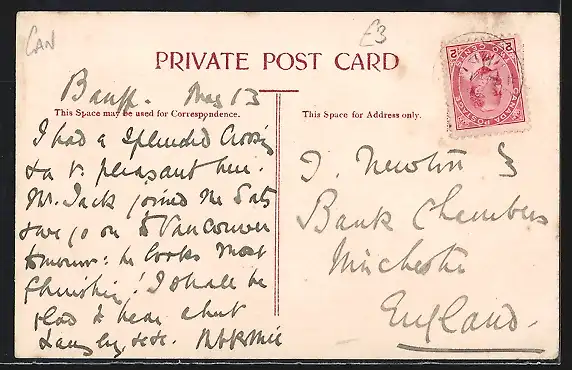 CAN
£3
PRIVATE POST CARD
Banff. May 13
This Space may be used for Correspondence.
I had a splendid Crossing
& a v. pleasant time.
Mr. Jack joined me Sat
& we go on to Vancouver
tomorrow: he looks most
flourishing! I shall be
glad to hear about
etc.
This Space for Address only.
J. Newton Esq
Bank Chambers
Winchester
England.
CANADA POSTAGE
2 CENTS 2